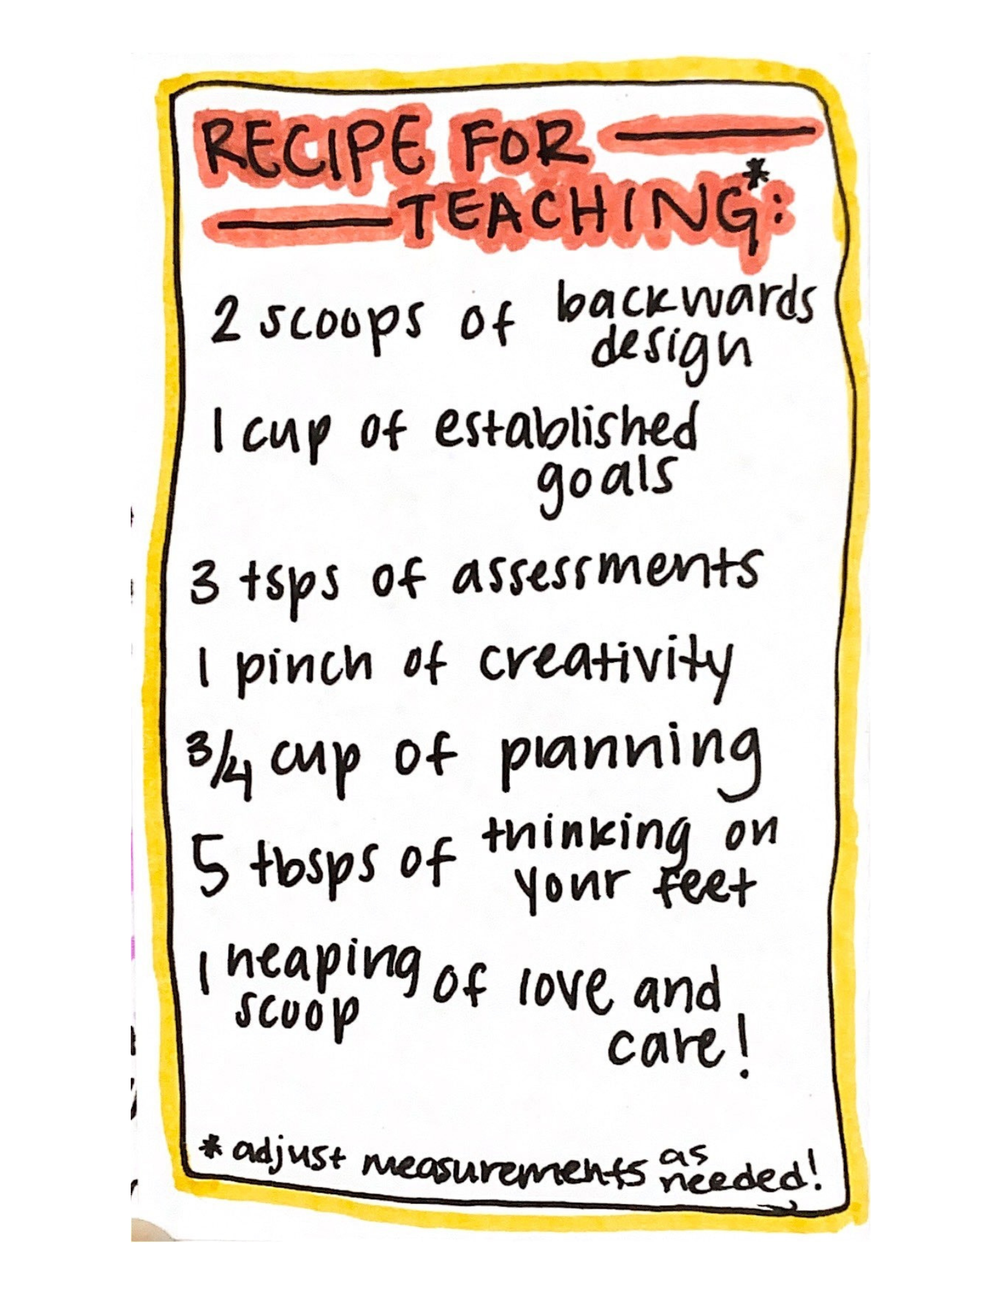 RECIPE FOR
TEACHING*:
2 scoops of backwards
design
1 cup of established
goals
3 tsps of assessments
1 pinch of creativity
3/4 cup of planning
5 tbsps of thinking on
your feet
1 heaping scoop of love and
care!
* adjust measurements as
needed!